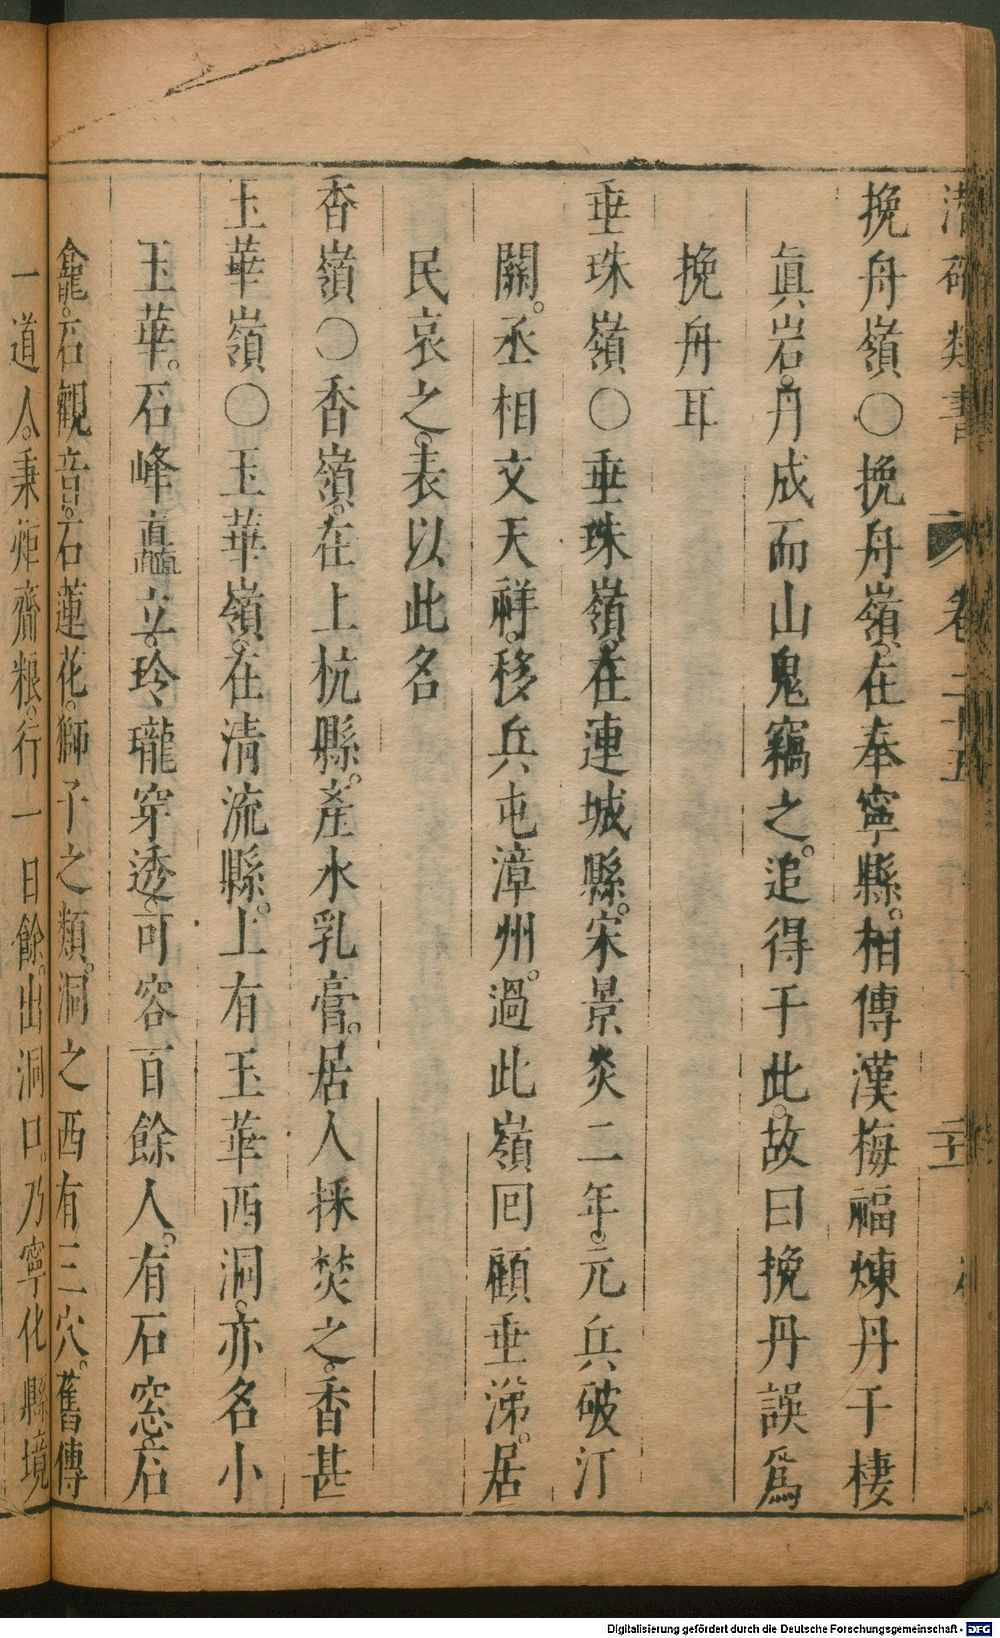 潛確類書 卷二十五
挽舟嶺〇挽舟嶺。在奉寧縣。相傳漢梅福煉丹于棲
眞岩。丹成而山鬼竊之。追得于此。故曰挽丹誤爲
挽舟耳
垂珠嶺〇垂珠嶺。在連城縣。宋景炎二年。元兵破汀
關。丞相文天祥。移兵屯漳州。過此嶺回顧垂涕。居
民哀之。表以此名
香嶺〇香嶺。在上杭縣。產水乳膏。居人採焚之。香甚
玉華嶺〇玉華嶺。在清流縣。上有玉華西洞。亦名小
玉華。石峰矗立。玲瓏穿透。可容百餘人。有石窓。石
龕。石觀音。石蓮花。獅子之類。洞之西有三穴。舊傳
一道人。秉炬齎粮。行一日餘。出洞口。乃寧化縣境
Digitalisierung gefördert durch die Deutsche Forschungsgemeinschaft - DFG